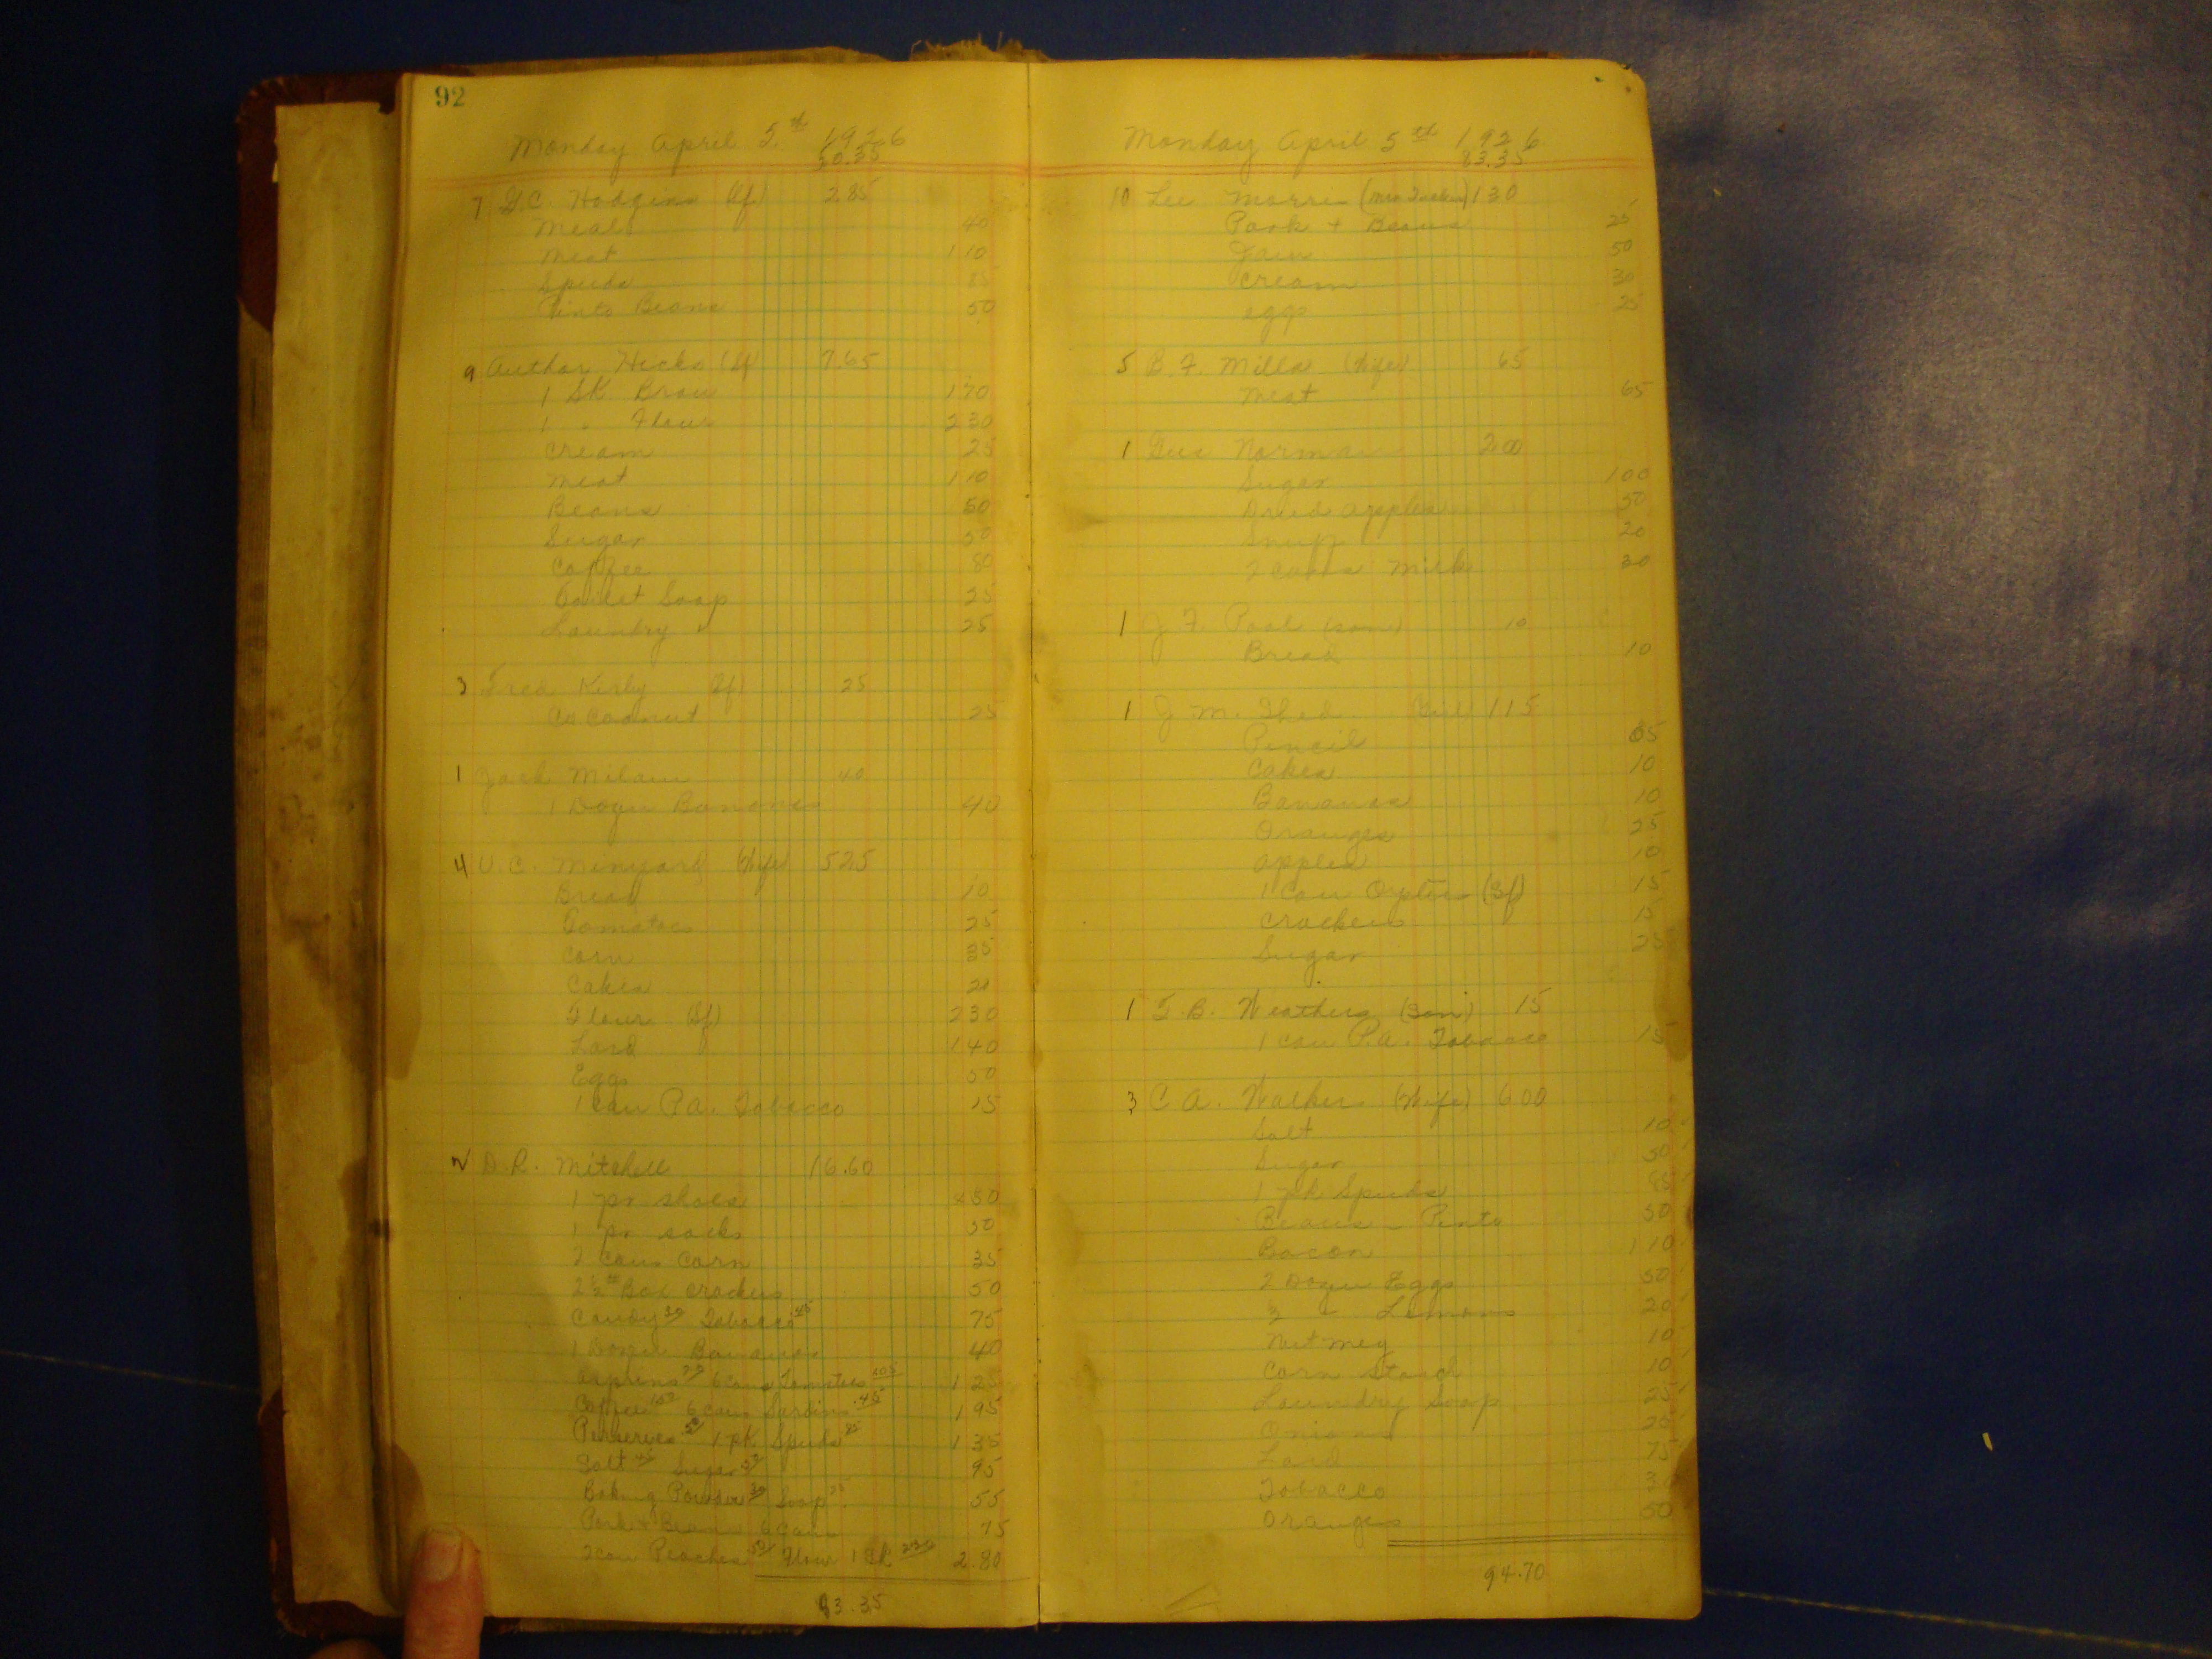 92
Monday April 5th 1926
50.35
7 G.C. Hodgins (Sf) 2.85
Meal 40
Meat 110
Spuds 85
Pinto Beans 50
9 Author Hicks (Sf) 7.65
1 SK. Bran 170
1 " Flour 230
Cream 25
Meat 110
Beans 50
Sugar 50
Coffee 80
Toilet Soap 25
Laundry " 25
3 Fred Kirby (Sf) 25
Cocoanut 25
1 Jack Milam 40
1 Dozen Bananas 40
4 U.C. Minyard (Wife) 525
Bread 10
Tomatoes 25
Corn 35
Cakes 20
Flour (Sf) 230
Lard 140
Eggs 50
1 Can P.A. Tobacco 15
2 D.R. Mitchell 16.60
1 pr shoes 450
1 pr socks 50
2 Cans Corn 35
2½ lb Box Crackers 50
Candy 30 Tobacco 45 75
1 Dozen Bananas 40
6 Cans Tomatoes 1 25
Coffee 150 6 Cans Sardins .45 1 95
Perserves 50 1 pk Spuds 85 1 35
Salt 45 Sugar 50 95
Baking Powder 30 Soap 25 55
Pork + Beans 6 Cans 75
2 can Peaches 50 Flour 1 SK 230 2.80
83.35
Monday April 5th 1926
83.35
10 Lee Morris (Mrs Tucker) 130
Pork + Beans 25
Jam 50
Cream 30
eggs 25
5 B.F. Mills (Wife) 65
Meat 65
1 Gus Norman 200
Sugar 100
Dried apples 50
Snuff 20
2 Cans Milk 30
1 J.F. Pool (son) 10
Bread 10
1 J.M. Shed Girl 115
Pencil 05
Cakes 10
Bananas 10
Oranges 25
apples 10
1 Can Oysters (Sf) 15
Crackers 15
Sugar 25
1 T.B. Weathers (Son) 15
1 can P.A. Tobacco 15
3 C.A. Walker (Wife) 600
Salt 10
Sugar 50
1 pk Spuds 85
Beans - Pinto 50
Bacon 110
2 Dozen Eggs 50
" Lemons 20
Nutmeg 10
Corn Starch 10
Laundry Soap 25
Onions 25
Lard 75
Tobacco 30
Oranges 50
94.70